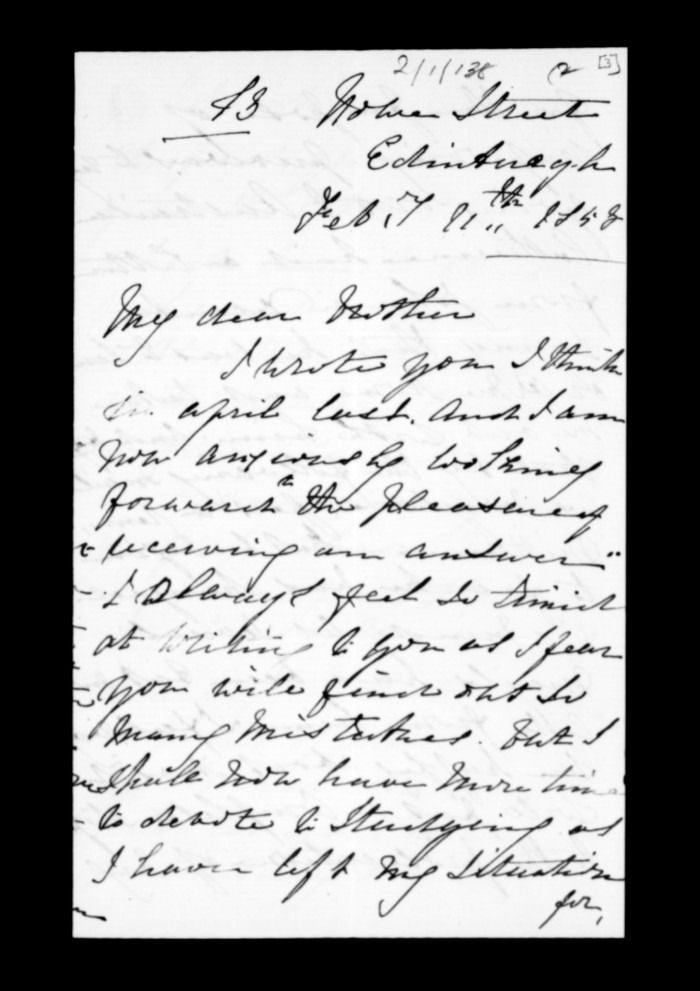 2/1/138 (2 [3]
13 Howe Street
Edinburgh
Feby 11th 1858
My dear Brother
I wrote you I think
in april last. And I am
now anxiously looking
forward to the pleasure of
receiving an answer"
I Always feel so timid
at writing to you as I fear
you will find out so
many mistakes. but I
shall now have more time
to devote to Studying as
I have left my situation
for,